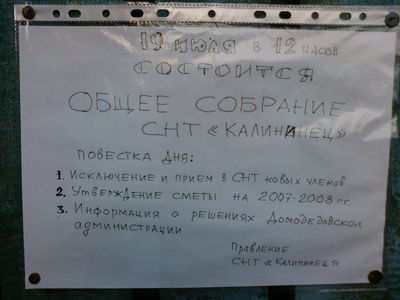 19 ИЮЛЯ В 12 ЧАСОВ
СОСТОИТСЯ
ОБЩЕЕ СОБРАНИЕ
СНТ «КАЛИНИНЕЦ»
ПОВЕСТКА ДНЯ:
1. ИСКЛЮЧЕНИЕ И ПРИЕМ В СНТ НОВЫХ ЧЛЕНОВ
2. УТВЕРЖДЕНИЕ СМЕТЫ НА 2007-2008 ГГ.
3. ИНФОРМАЦИЯ О РЕШЕНИЯХ ДОМОДЕДОВСКОЙ
АДМИНИСТРАЦИИ
ПРАВЛЕНИЕ
СНТ «КАЛИНИНЕЦ»